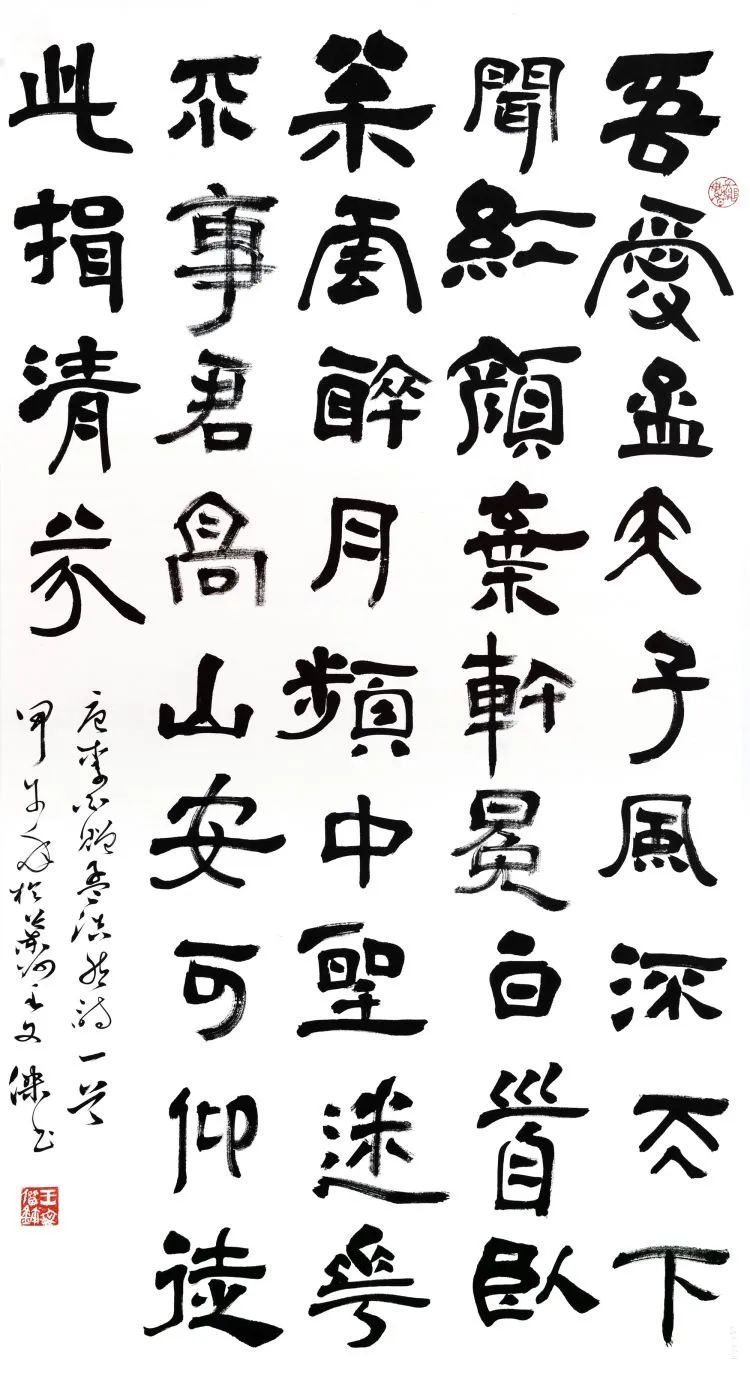 吾愛孟夫子風流天下
聞紅顏棄軒冕白首臥
松雲醉月頻中聖迷花
不事君高山安可仰徒
此揖清芬
唐李白贈孟浩然詩一首
甲午秋於黃河王文傑書